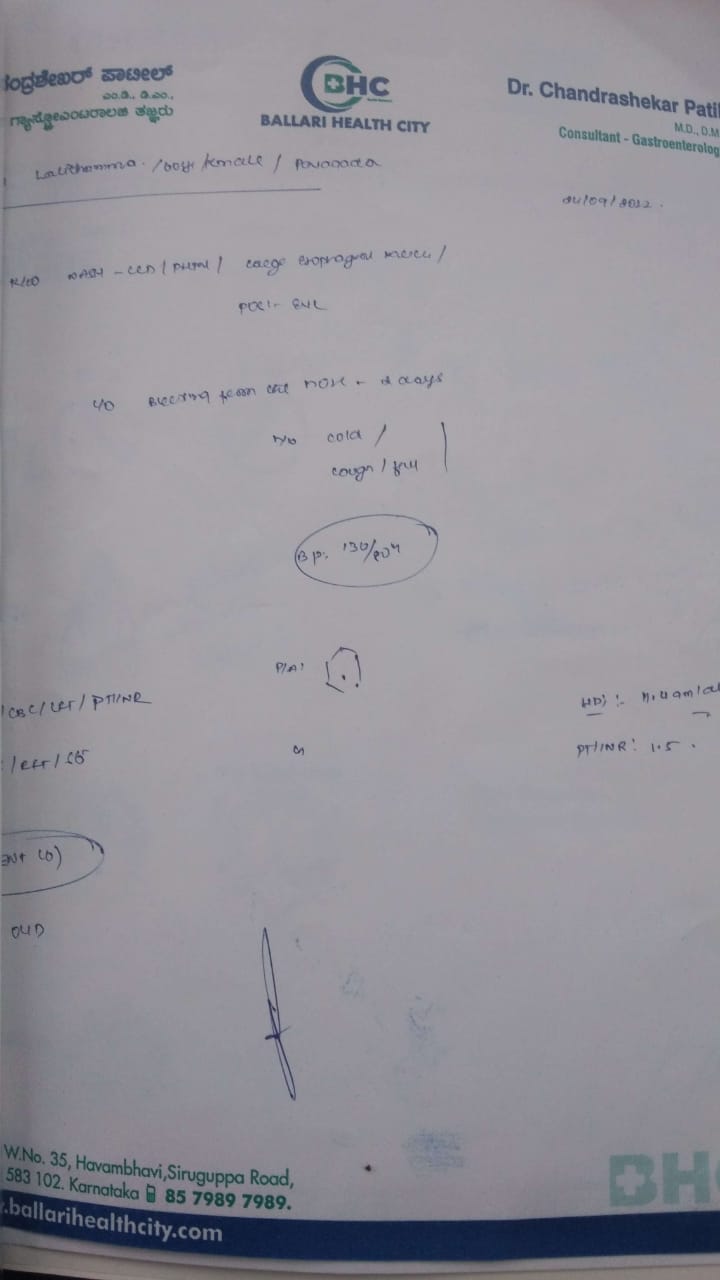 ಂದ್ರಶೇಖರ್ ಪಾಟೀಲ್
ಎಂ.ಡಿ., ಡಿ.ಎಂ.,
ಗ್ಯಾಸ್ಟ್ರೋಎಂಟರಾಲಜಿ ತಜ್ಞರು
BHC
BALLARI HEALTH CITY
Dr. Chandrashekar Patil
M.D., D.M
Consultant - Gastroenterolog
Lalithamma / 60y / female / Pavagada
/09/2022.
K/C/O NASH - CLD / PHTN / Large esophageal /
POST- EVL
C/O Bleeding from the nose - 2 days
N/o cold /
cough /
BP:- 130/80
P/A:
CBC / LFT / PT/INR
/ RFT /
Hb :-
PT/INR: 1.5.
ENT
W.No. 35, Havambhavi, Siruguppa Road,
583 102. Karnataka 85 7989 7989.
.ballarihealthcity.com
BH